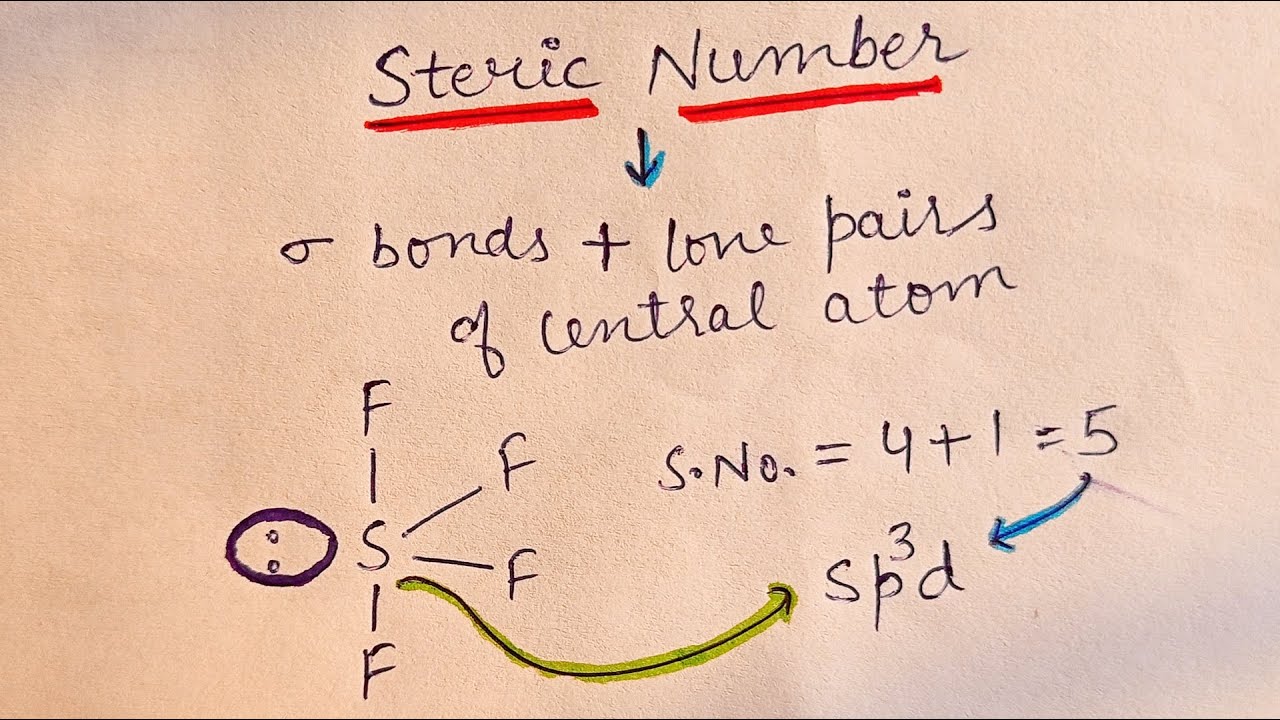 Steric Number
σ bonds + lone pairs
of central atom
F
F
S.No. = 4+1 = 5
: S
F
sp³d
F